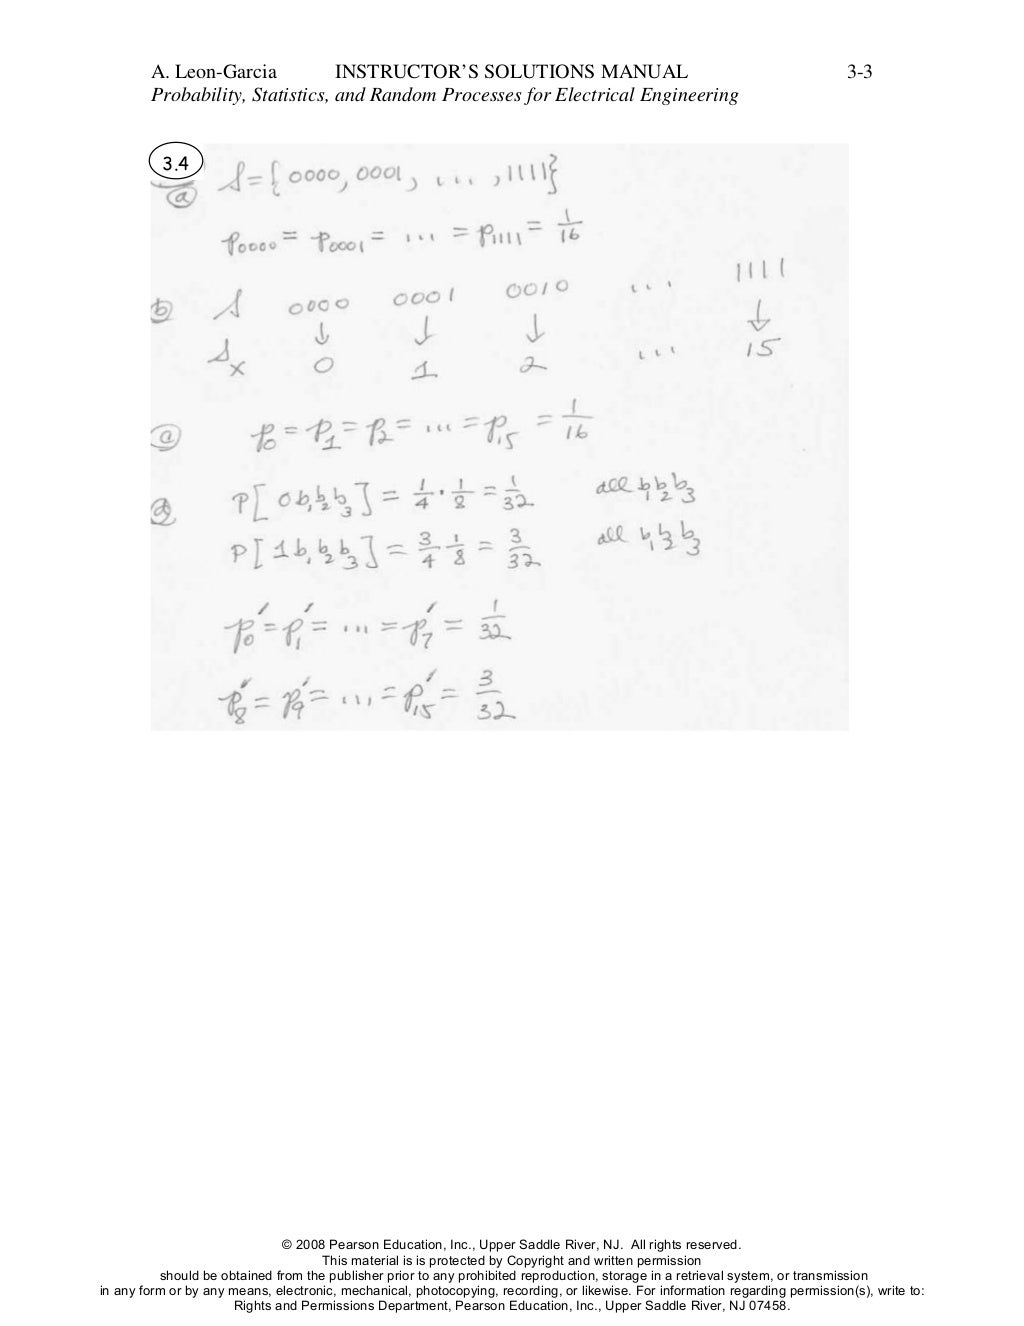 A. Leon-Garcia INSTRUCTOR'S SOLUTIONS MANUAL 3-3
Probability, Statistics, and Random Processes for Electrical Engineering
3.4
a S={0000, 0001, ..., 1111}
p0000 = p0001 = ... = p1111 = 1/16
b S 0000 0001 0010 ... 1111
↓ ↓ ↓ ↓
Sx 0 1 2 ... 15
p0 = p1 = p2 = ... = p15 = 1/16
P[0b1b2b3] = 1/4 · 1/8 = 1/32 all b1b2b3
P[1b1b2b3] = 3/4 1/8 = 3/32 all b1b2b3
p0' = p1' = ... = p7' = 1/32
p8' = p9' = ... = p15' = 3/32
© 2008 Pearson Education, Inc., Upper Saddle River, NJ. All rights reserved.
This material is is protected by Copyright and written permission
should be obtained from the publisher prior to any prohibited reproduction, storage in a retrieval system, or transmission
in any form or by any means, electronic, mechanical, photocopying, recording, or likewise. For information regarding permission(s), write to:
Rights and Permissions Department, Pearson Education, Inc., Upper Saddle River, NJ 07458.